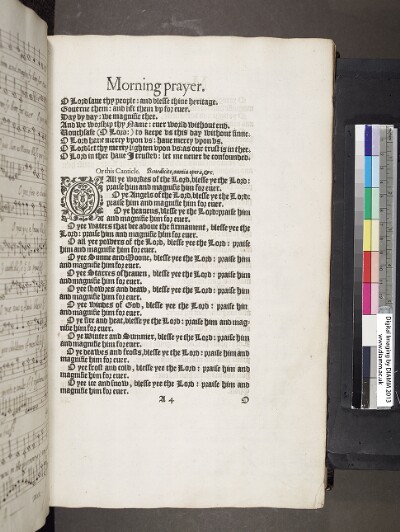 Morning prayer.
O Lord saue thy people : and blesse thine heritage.
Gouerne them : and lift them vp for euer.
Day by day : we magnifie thee.
And we worship thy Name : euer world without end.
Vouchsafe (O Lord:) to keepe vs this day without sinne.
O Lord haue mercy vpon vs : haue mercy vpon vs.
O Lord let thy mercy lighten vpon vs : as our trust is in thee.
O Lord in thee haue I trusted : let me neuer be confounded.
Or this Canticle. Benedicite, omnia opera, &c.
O All ye workes of the Lord, blesse ye the Lord :
praise him and magnifie him for euer.
O ye Angels of the Lord, blesse yee the Lord :
praise him and magnifie him for euer.
O ye heauens, blesse yee the Lord : praise him
and magnifie him for euer.
O yee waters that bee aboue the firmament, blesse yee the
Lord : praise him and magnifie him for euer.
O all yee powers of the Lord, blesse yee the Lord : praise
him and magnifie him for euer.
O yee Sunne and Moone, blesse yee the Lord : praise him
and magnifie him for euer.
O yee Starres of heauen, blesse yee the Lord : praise him
and magnifie him for euer.
O yee showres and deaw, blesse yee the Lord : praise him
and magnifie him for euer.
O yee windes of God, blesse yee the Lord : praise him
and magnifie him for euer.
O ye fire and heat, blesse ye the Lord : praise him and mag-
nifie him for euer.
O ye Winter and Summer, blesse ye the Lord : praise him
and magnifie him for euer.
O ye deawes and frosts, blesse ye the Lord : praise him and
magnifie him for euer.
O yee frost and cold, blesse yee the Lord : praise him and
magnifie him for euer.
O yee ice and snow, blesse yee the Lord : praise him and
magnifie him for euer.
A 4 O
Digital Imaging by DIAMM 2013
www.diamm.ac.uk